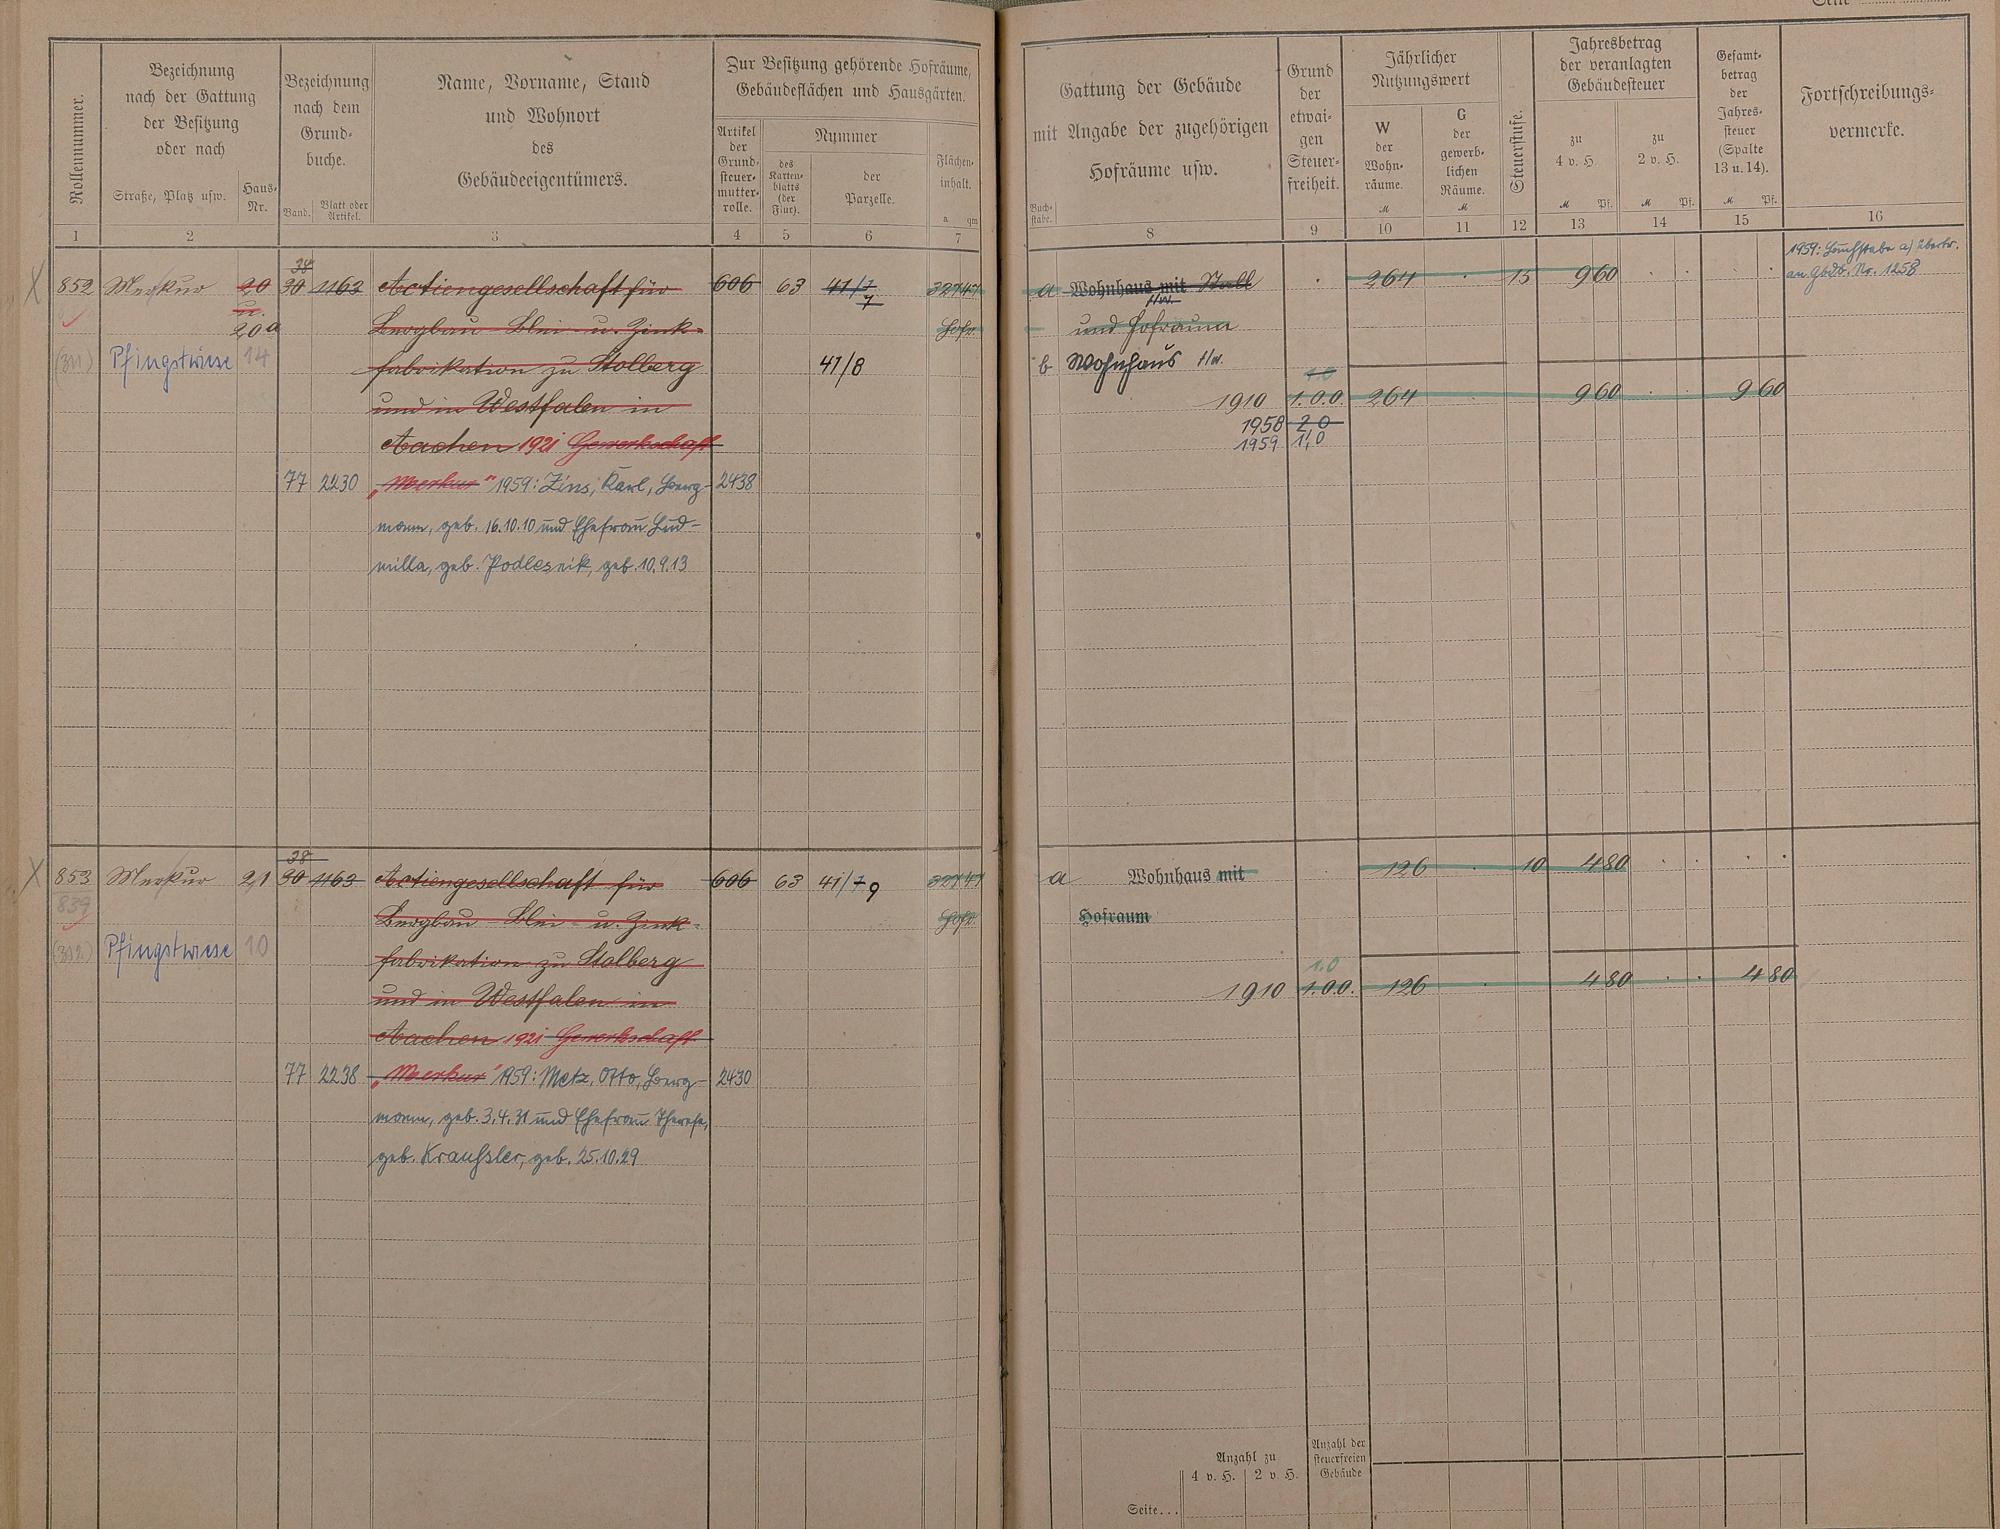 Seite
Rollennummer.
Bezeichnung
nach der Gattung
der Besitzung
oder nach
Straße, Platz usw.
Haus-
Nr.
Bezeichnung
nach dem
Grund-
buche.
Band.
Blatt oder
Artikel.
Name, Vorname, Stand
und Wohnort
des
Gebäudeeigentümers.
Zur Besitzung gehörende Hofräume,
Gebäudeflächen und Hausgärten.
Artikel
der
Grund-
steuer-
mutter-
rolle.
Nummer
des
Karten-
blatts
(der
Flur).
der
Parzelle.
Flächen-
inhalt.
a qm
1 2 3 4 5 6 7
Gattung der Gebäude
mit Angabe der zugehörigen
Hofräume usw.
Buch-
stabe.
Grund
der
etwai-
gen
Steuer-
freiheit.
Jährlicher
Nutzungswert
W
der
Wohn-
räume.
M
G
der
gewerb-
lichen
Räume.
M
Steuerstufe.
Jahresbetrag
der veranlagten
Gebäudesteuer
zu
4 v. H.
M Pf.
zu
2 v. H.
M Pf.
Gesamt-
betrag
der
Jahres-
steuer
(Spalte
13 u. 14).
M Pf.
Fortschreibungs-
vermerke.
8 9 10 11 12 13 14 15 16
38
852 Merkur 20 30 1163 Actiengesellschaft für 606 63 41/7 3247
7
u.
20a Bergbau Blei- u. Zink- Hofr.
(311) Pfingstwiese 14 fabrikation zu Stolberg 41/8
und in Westfalen in
Aachen 1921 Gewerkschaft
77 2230 „Merkur" 1959: Zins, Karl, Berg- 2438
mann, geb. 16.10.10 und Ehefrau Lud-
milla, geb. Podlesnik, geb. 10.9.13
a Wohnhaus mit Stall 264 15 9 60
und Hofraum
b Wohnhaus
1.0
1910 1.0.0. 264 9 60 9 60
1958 2,0
1959 1,0
1959: Buchstabe a) übertr.
an Gbdb. Nr. 1258
38
853 Merkur 21 30 1163 Actiengesellschaft für 606 63 41/7 9 3247
839 Bergbau Blei- u. Zink- Hofr.
(312) Pfingstwiese 10 fabrikation zu Stolberg
und in Westfalen in
Aachen 1921 Gewerkschaft
77 2238 „Merkur" 1959: Metz, Otto, Berg- 2430
mann, geb. 3.4.31 und Ehefrau Therese,
geb. Kraußler, geb. 25.10.29
a Wohnhaus mit 126 10 4 80
Hofraum
1.0
1910 1.0.0. 126 4 80 4 80
Anzahl zu
4 v. H. 2 v. H.
Anzahl der
steuerfreien
Gebäude
Seite...